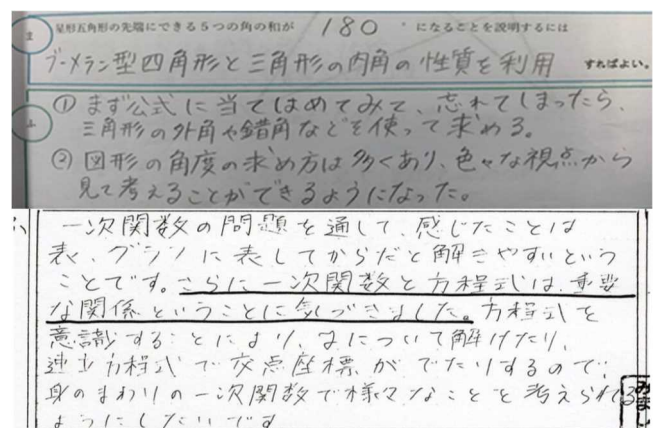 星形五角形の先端にできる5つの角の和が 180° になることを説明するには
ブーメラン型四角形と三角形の内角の性質を利用 すればよい。
① まず公式に当てはめてみて、忘れてしまったら、
三角形の外角や錯角などを使って求める。
② 図形の角度の求め方は多くあり、色々な視点から
見て考えることができるようになった。
一次関数の問題を通して、感じたことは
表、グラフに表してからだと解きやすいという
ことです。さらに一次関数と方程式は、重要
な関係ということに気づきました。方程式を
意識することにより、yについて解けたり、
連立方程式で交点座標がでたりするので、
身のまわりの一次関数で様々なことを考えられる
ようにしたいです